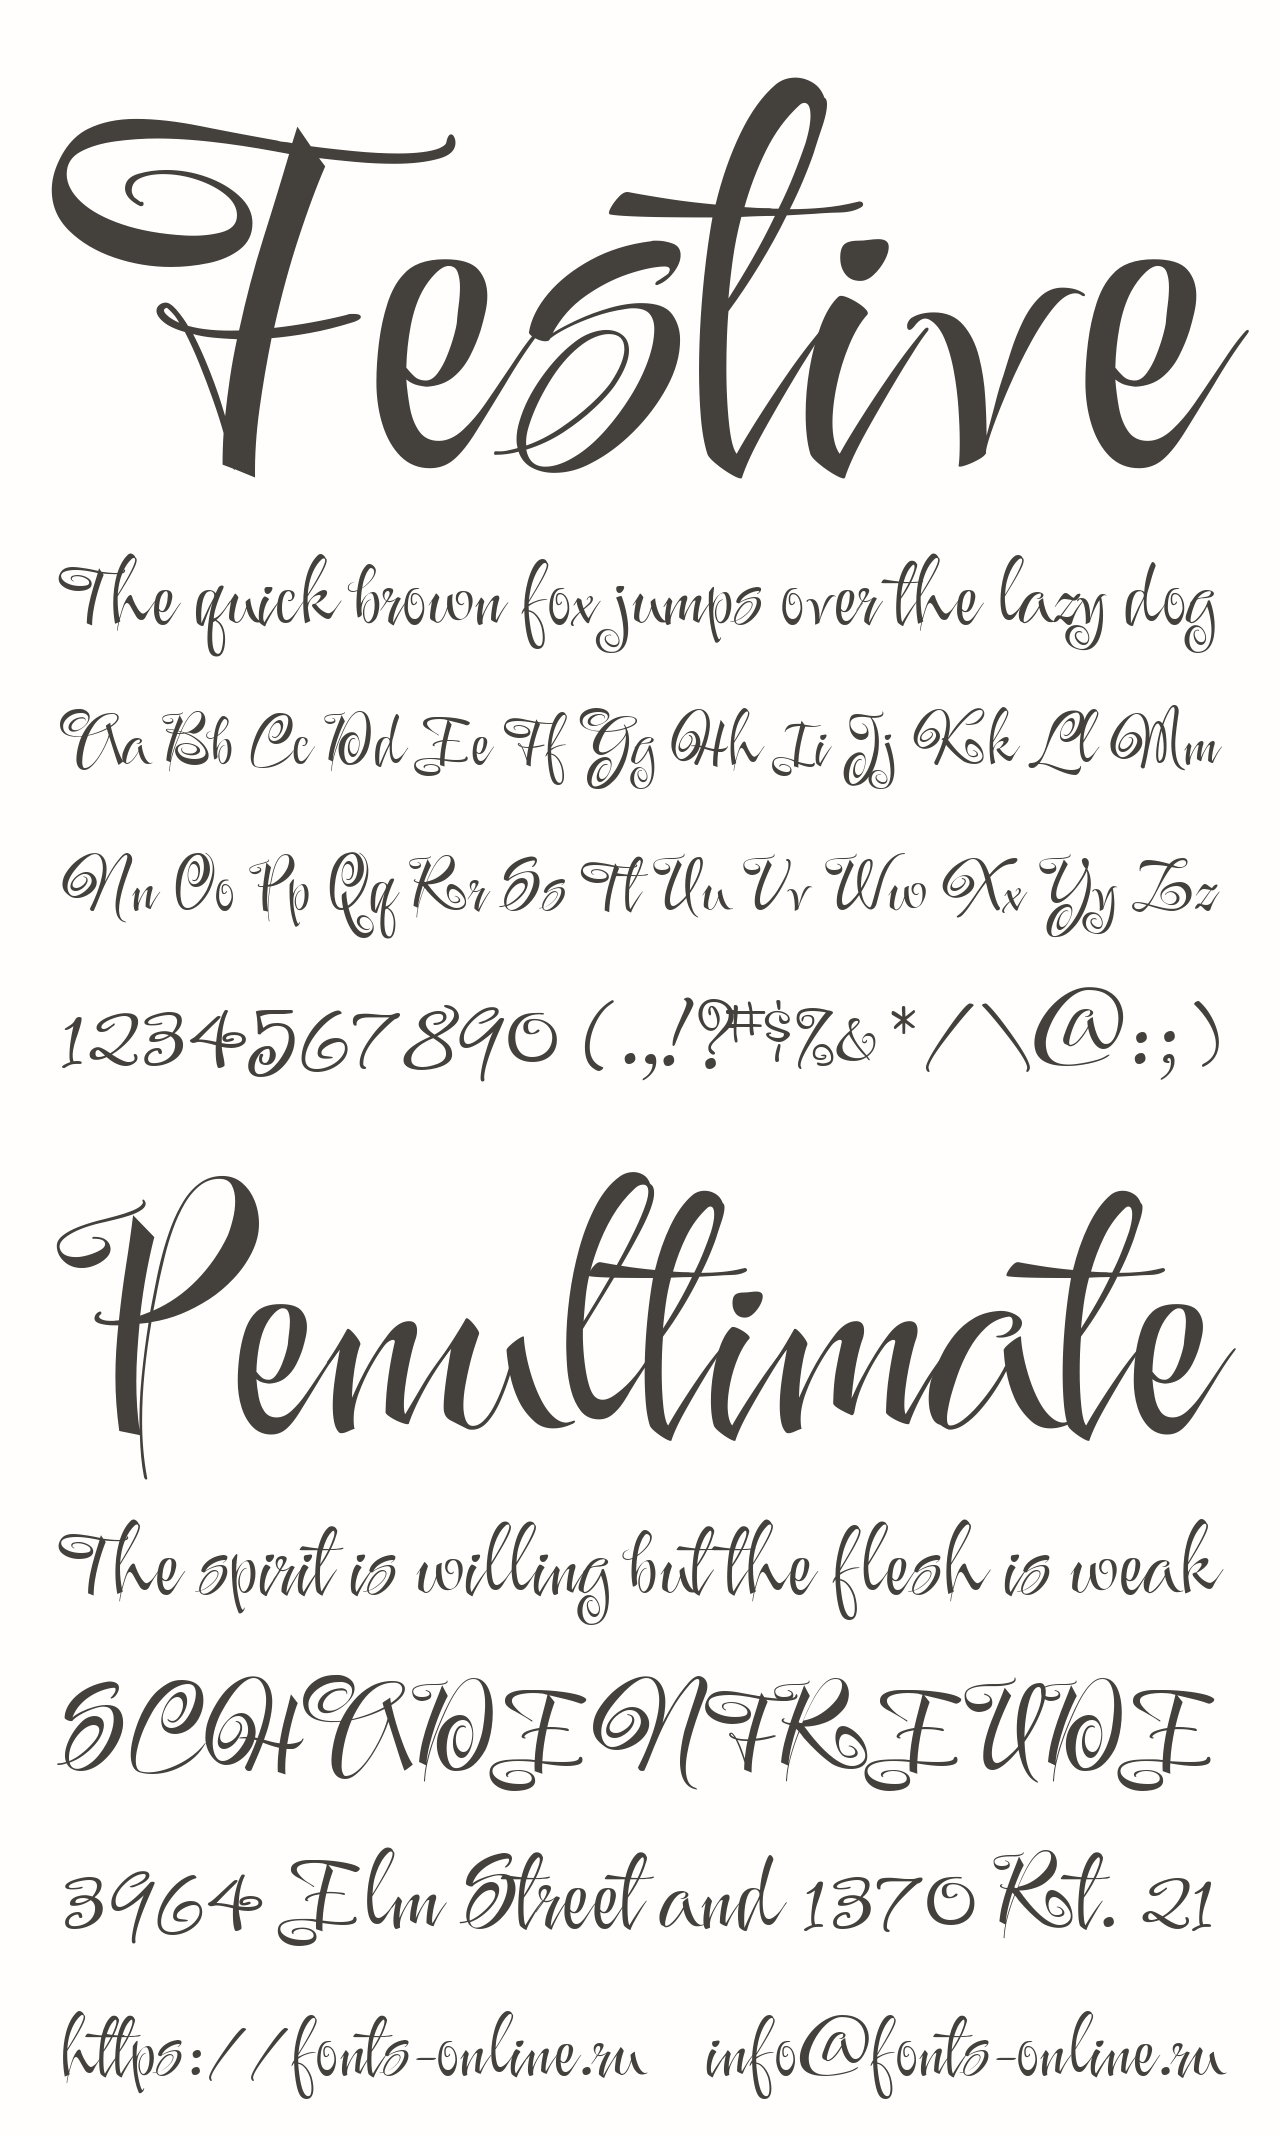 Festive
The quick brown fox jumps over the lazy dog
Aa Bb Cc Dd Ee Ff Gg Hh Ii Jj Kk Ll Mm
Nn Oo Pp Qq Rr Ss Tt Uu Vv Ww Xx Yy Zz
1234567890 (.,!?#$%&*/\@:;)
Penultimate
The spirit is willing but the flesh is weak
SCHADENFREUDE
3964 Elm Street and 1370 Rt. 21
https://fonts-online.ru info@fonts-online.ru